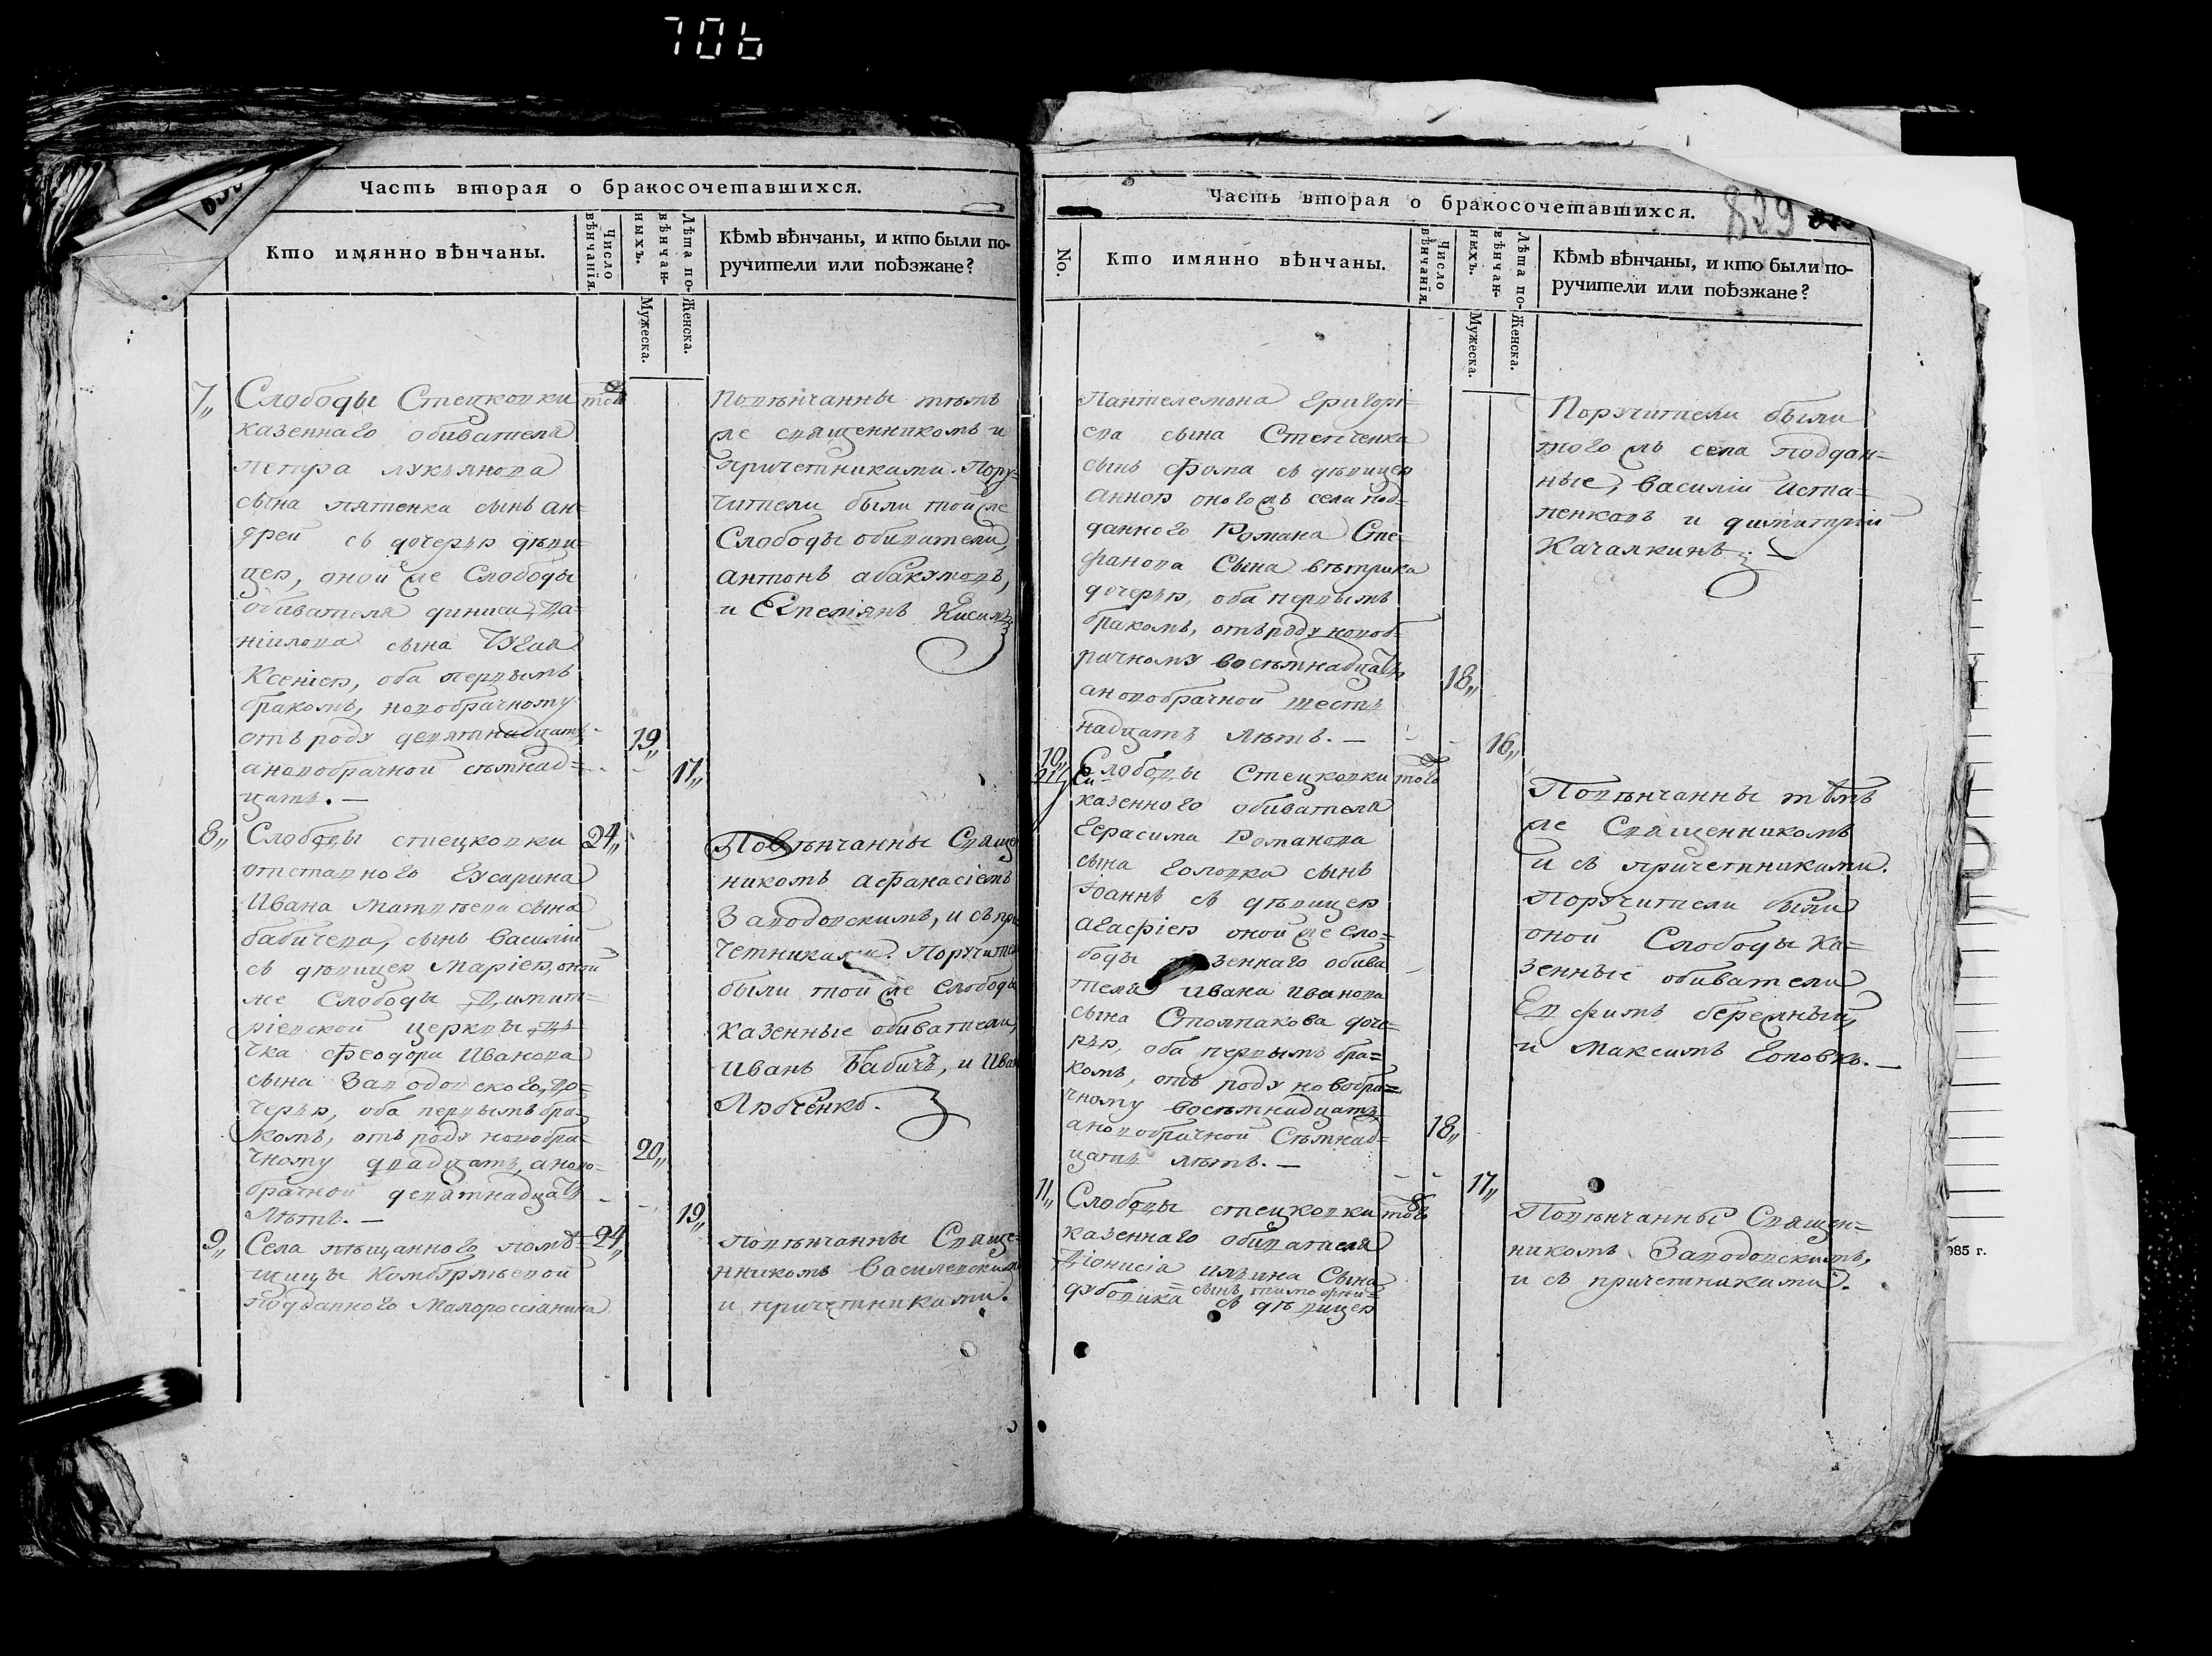 706
Часть вторая о бракосочетавшихся.
Кто имянно вѣнчаны.
Число вѣнчанія.
Лѣта повѣнчанныхъ.
Мужеска.
Женска.
Кѣмъ вѣнчаны, и кто были по-
ручители или поѣзжане?
7,, Слободы Стецковки
казеннаго обивателя
петра лукьянова
сына пятенка сынъ ан=
дрей съ дочерью дѣви=
цею, оной же Слободы
обивателя
ніилова сына
Ксеніею, оба первымъ
бракомъ, новобрачному
отъ роду девятнадцать 19,,
а новобрачной сѣмнад= 17,,
цать. —
Повѣнчанны тѣмъ
же священникомъ и
причетниками. Пору=
чители были той же
Слободы обиватели,
антонъ абакумовъ,
и Емеліянъ
8,, Слободы стецковки 24,,
отставного Гусарина
Ивана матвѣева сына
бабичева, сынъ Василій
съ дѣвицею Маріею, оной
же Слободы Димит=
ріевской церквы дя=
чка Феодора Иванова
сына Заводовского, до=
черью, оба первымъ бра=
комъ, отъ роду новобра=
чному двадцать, а ново= 20,,
брачной девятнадцать
Лѣтъ. — 19,,
Повѣнчанны Свяще
никомъ Афанасіемъ
Заводовскимъ, и съ при
четниками. Поручите
были той же Слободы
казенные обиватели,
Иванъ Бабичъ, и Иван
Любченко.
9,, Села пѣщанного помѣ= 24,,
щицы
подданного Малороссіанина
Повѣнчанны Свяще=
нникомъ Василевским
и причетниками.
Часть вторая о бракосочетавшихся.
829
No.
Кто имянно вѣнчаны.
Число вѣнчанія.
Лѣта повѣнчанныхъ.
Мужеска.
Женска.
Кѣмъ вѣнчаны, и кто были по-
ручители или поѣзжане?
Пантелемона Григорі=
ева сына Степченка
сынъ Фома съ дѣвицею
анною оного жъ села под=
данного Романа Сте=
фанова Сына вѣтрика
дочерью, оба первымъ
бракомъ, отъ роду новоб=
рачному восѣмнадцать 18,,
а новобрачной шесть
надцать лѣтъ. — 16,,
Поручители были
того жъ села поддан=
ные, василій Иста=
пенковъ и димитрій
Качалкинъ.
10,, Слободы Стецковки того
казенного обивателя
Герасима Романова
сына Головка сынъ
Іоаннъ съ дѣвицею
агафіею оной же Сло=
боды казеннаго обива
теля Ивана Иванова
сына Столпакова доче=
рью, оба первымъ бра=
комъ, отъ роду новобра=
чному восѣмнадцать 18,,
а новобрачной Сѣмнад=
цать лѣтъ. — 17,,
Повѣнчанны тѣмъ
же Священникомъ
и съ причетниками.
Поручители были
оной Слободы ка=
зенные обиватели
Евфимъ беремный,
и Максимъ Головкъ. —
11,, Слободы стецковки того
казеннаго обивателя
Діонисія ильина Сына
дубовика сынъ тимофѣй=
съ дѣвицею
Повѣнчанны Священ=
никомъ Заводовскимъ,
и съ причетниками.
985 г.